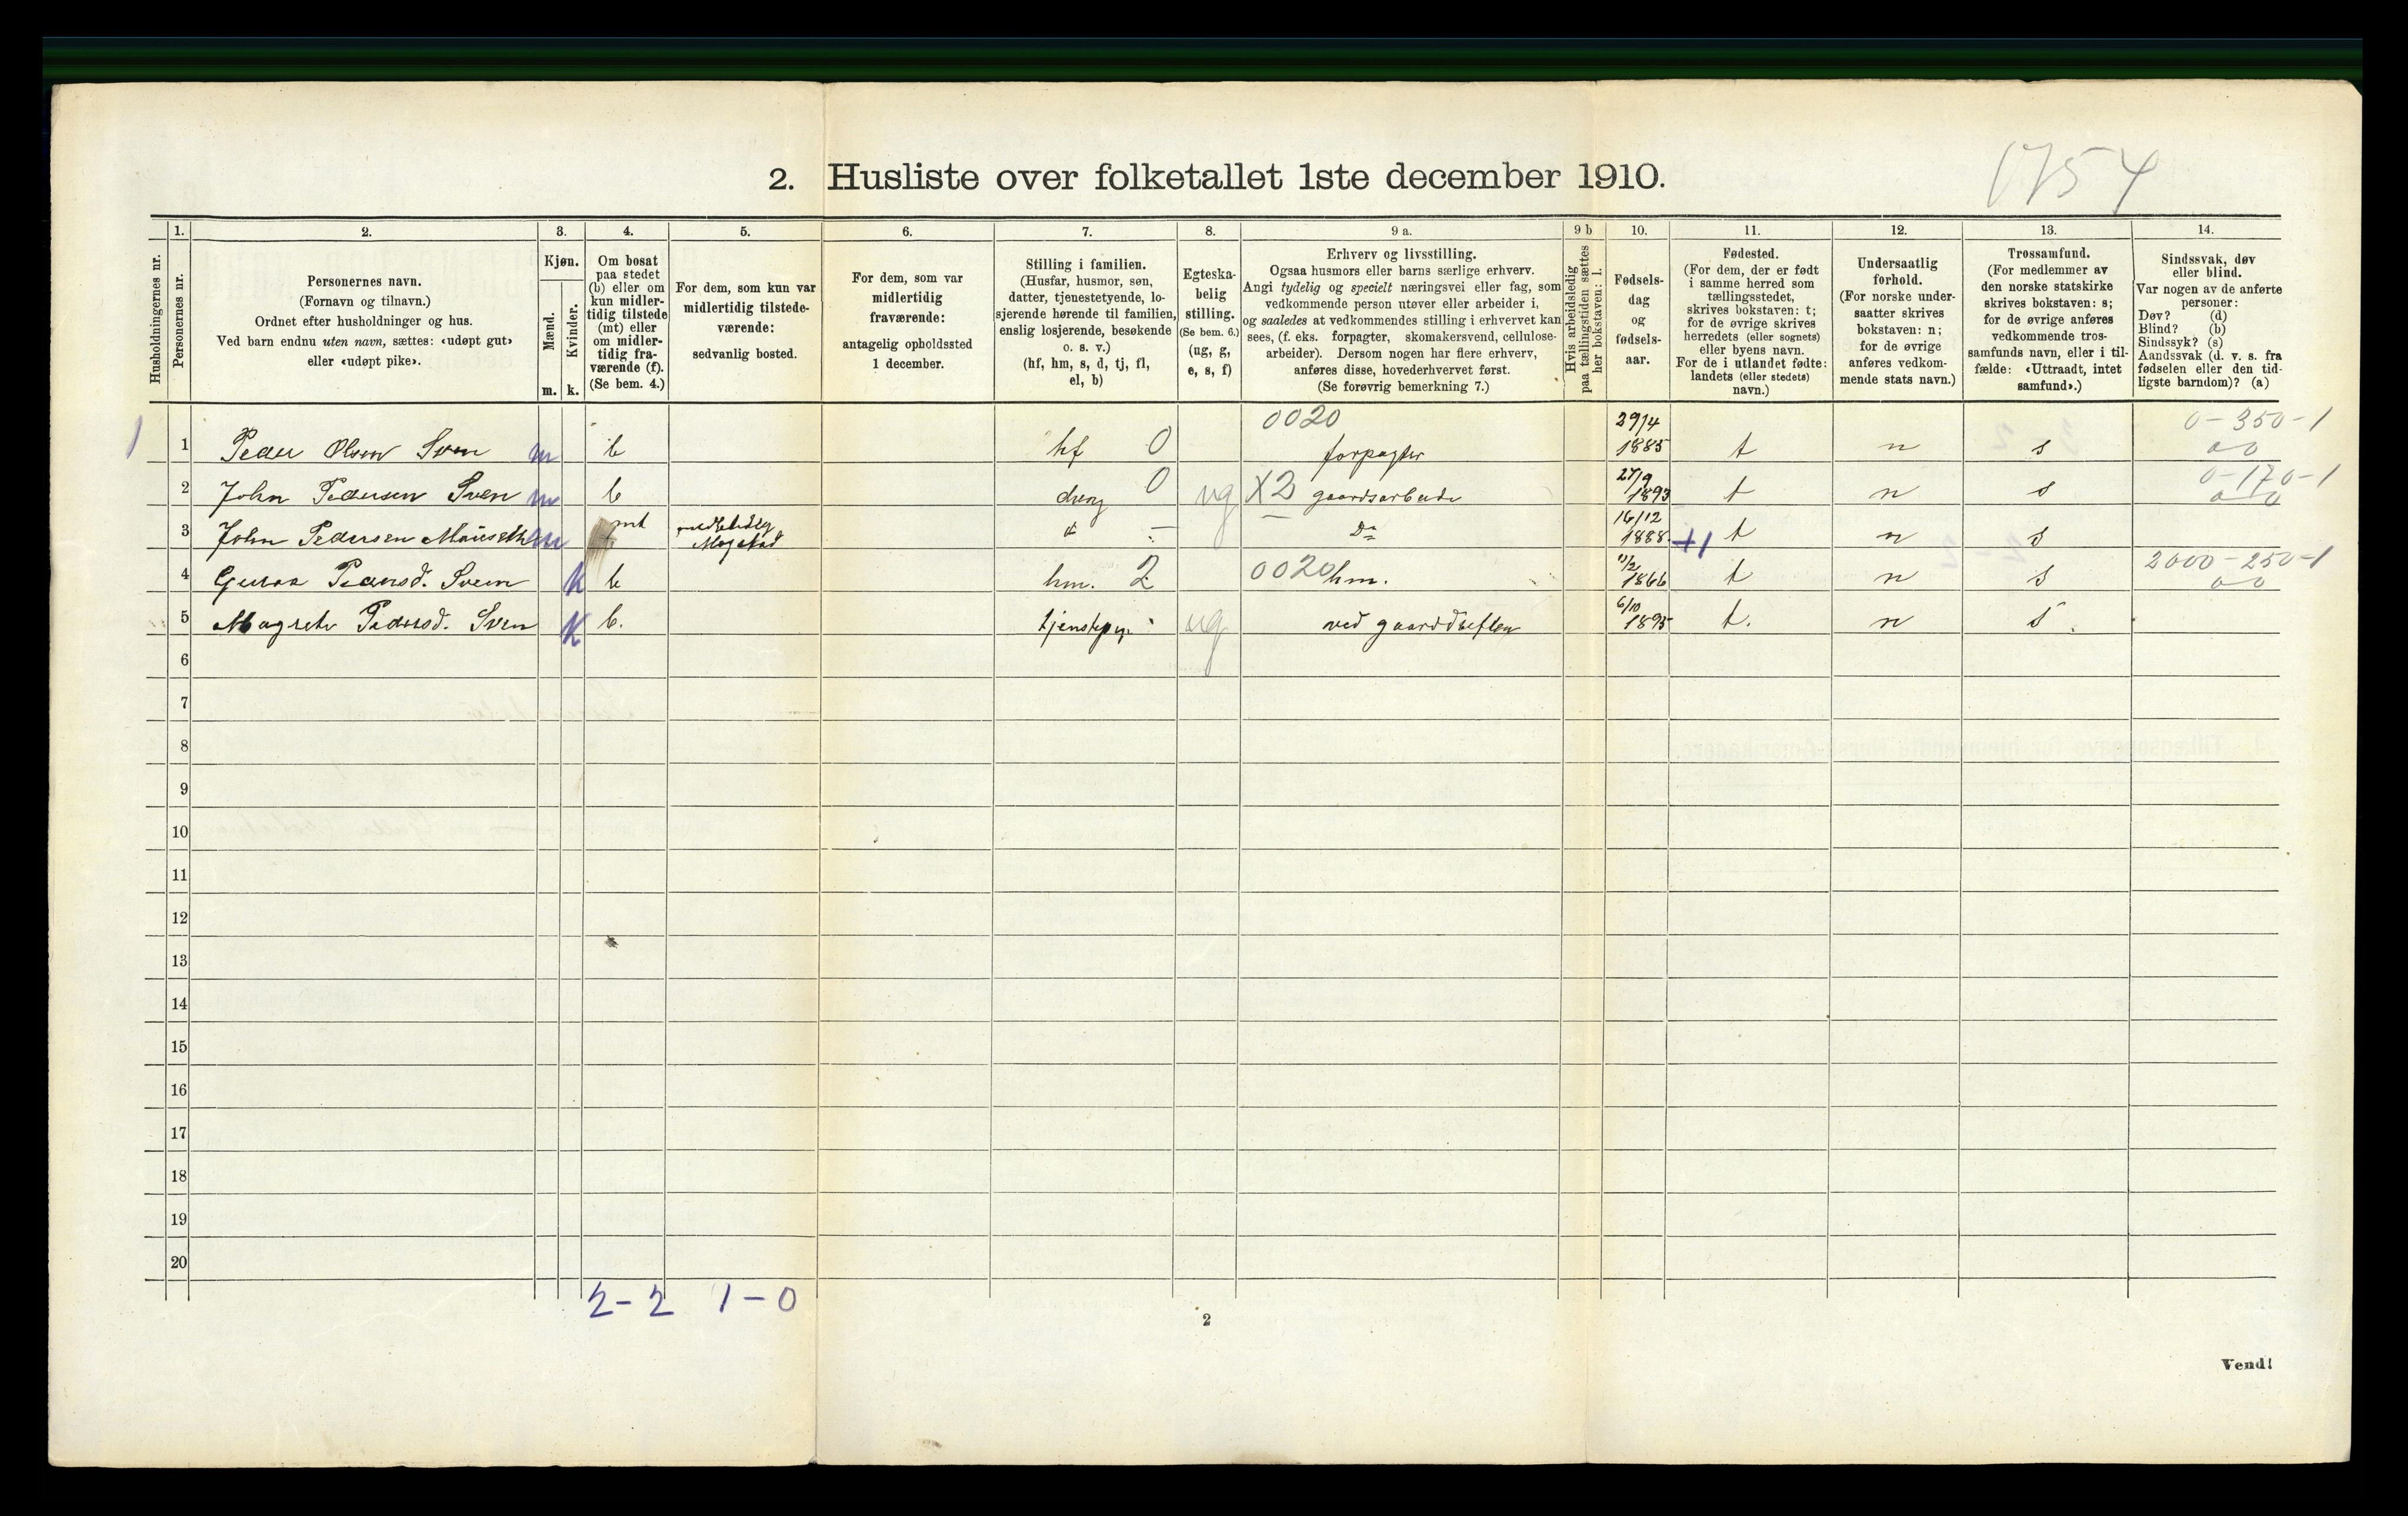 1754
2. Husliste over folketallet 1ste december 1910.
Husholdningernes nr.
1.
Personernes nr.
2.
Personernes navn.
(Fornavn og tilnavn.)
Ordnet efter husholdninger og hus.
Ved barn endnu uten navn, sættes: «udøpt gut»
eller «udøpt pike».
3.
Kjøn.
Mænd.
m.
Kvinder.
k.
4.
Om bosat
paa stedet
(b) eller om
kun midler-
tidig tilstede
(mt) eller
om midler-
tidig fra-
værende (f).
(Se bem. 4.)
5.
For dem, som kun var
midlertidig tilstede-
værende:
sedvanlig bosted.
6.
For dem, som var
midlertidig
fraværende:
antagelig opholdssted
1 december.
7.
Stilling i familien.
(Husfar, husmor, søn,
datter, tjenestetyende, lo-
sjerende hørende til familien,
enslig losjerende, besøkende
o. s. v.)
(hf, hm, s, d, tj, fl,
el, b)
8.
Egteska-
belig
stilling.
(Se bem. 6.)
(ug, g,
e, s, f)
9 a.
Erhverv og livsstilling.
Ogsaa husmors eller barns særlige erhverv.
Angi tydelig og specielt næringsvei eller fag, som
vedkommende person utøver eller arbeider i,
og saaledes at vedkommendes stilling i erhvervet kan
sees, (f. eks. forpagter, skomakersvend, cellulose-
arbeider). Dersom nogen har flere erhverv,
anføres disse, hovederhvervet først.
(Se forøvrig bemerkning 7.)
9 b
Hvis arbeidsledig
paa tællingstiden sættes
her bokstaven: l.
10.
Fødsels-
dag
og
fødsels-
aar.
11.
Fødested.
(For dem, der er født
i samme herred som
tællingsstedet,
skrives bokstaven: t;
for de øvrige skrives
herredets (eller sognets)
eller byens navn.
For de i utlandet fødte:
landets (eller stedets)
navn.)
12.
Undersaatlig
forhold.
(For norske under-
saatter skrives
bokstaven: n;
for de øvrige
anføres vedkom-
mende stats navn.)
13.
Trossamfund.
(For medlemmer av
den norske statskirke
skrives bokstaven: s;
for de øvrige anføres
vedkommende tros-
samfunds navn, eller i til-
fælde: «Uttraadt, intet
samfund».)
14.
Sindssvak, døv
eller blind.
Var nogen av de anførte
personer:
Døv? (d)
Blind? (b)
Sindssyk? (s)
Aandssvak (d. v. s. fra
fødselen eller den tid-
ligste barndom)? (a)
1 1 Peder Olsen Sven m b hf 0 0020 forpagter 29/4 1885 t n s 0-350-1 00
2 John Pedersen Sven m b dreng 0 ug X2 gaardsarbeide 27/9 1893 t n s 0-170-1 00
3 John Pedersen Mauseth m mt Do 16/12 1888 +1 t n s
4 Pedersd. Sven k b hm. 2 0020 hm. 1866 t n s 2000-250-1 00
5 Magrete Pedersd. Sven k b. ug ved 6/10 1895 t. n s
6
7
8
9
10
11
12
13
14
15
16
17
18
19
20
2-2 1-0
2
Vend!